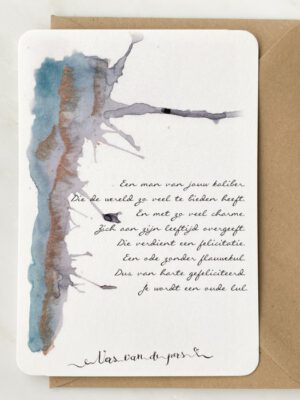 Een man van jouw kaliber.
Die de wereld zo veel te bieden heeft.
En met zo veel charme.
Zich aan zijn leeftijd overgeeft.
Die verdient een felicitatie.
Een ode zonder flauwekul.
Dus van harte gefeliciteerd.
Je wordt een oude lul.
Vers van de pers